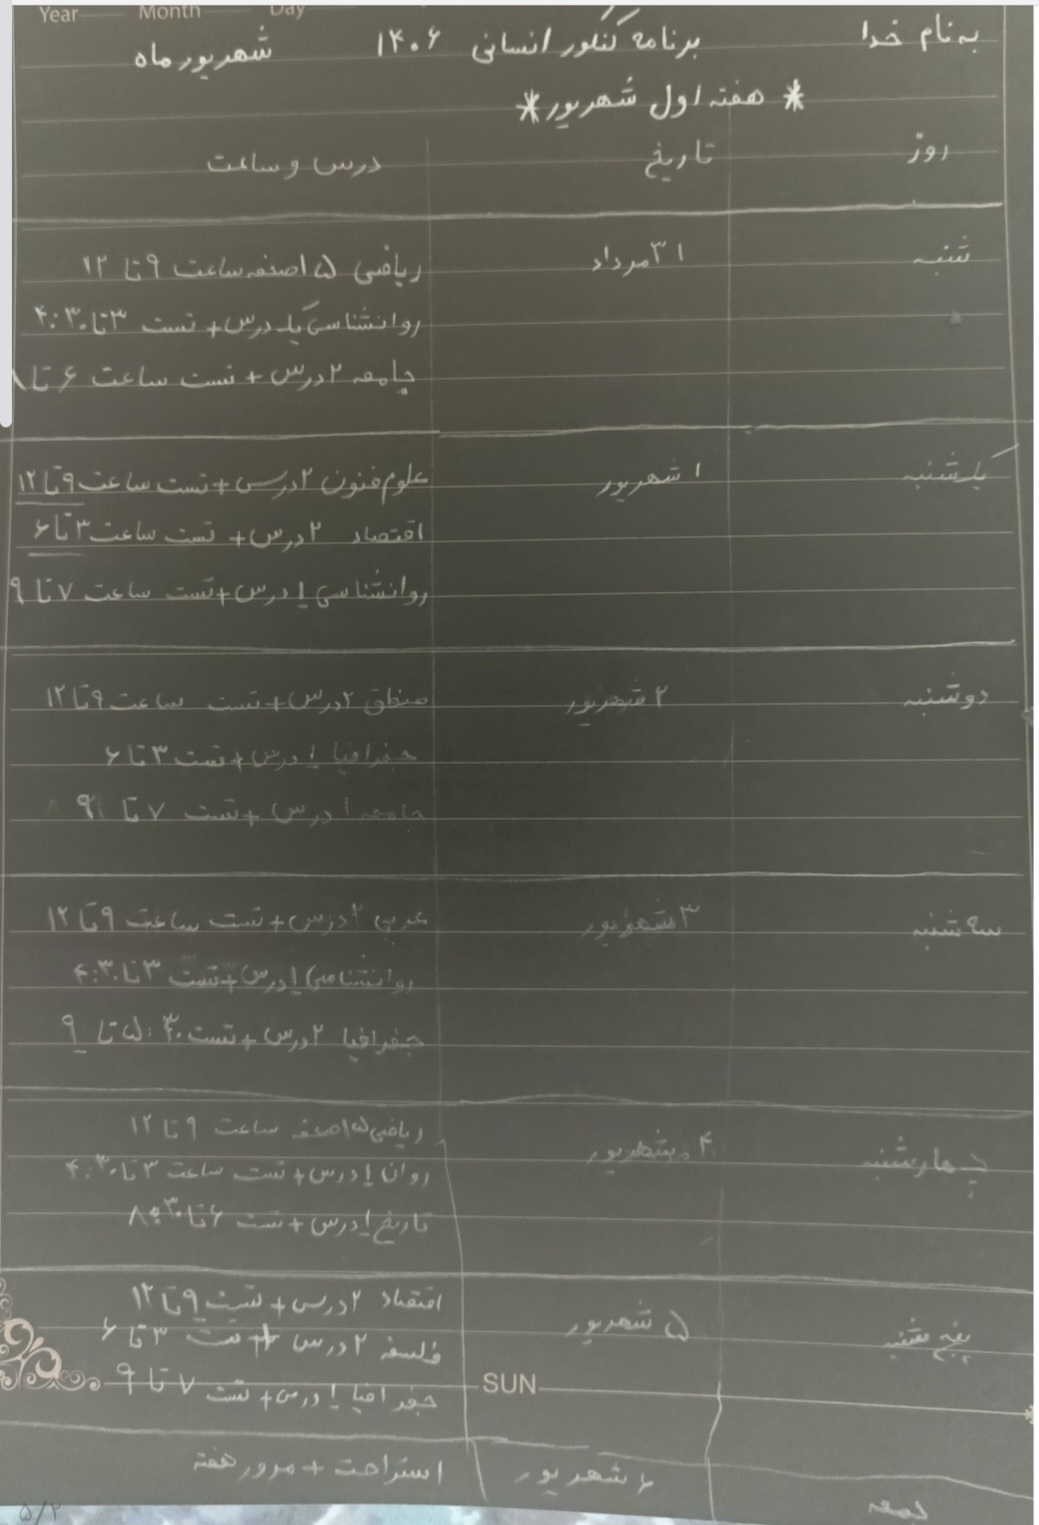 Year Month Day
به نام خدا برنامه کنکور انسانی ۱۴۰۶ شهریور ماه
* هفته اول شهریور *
روز تاریخ درس و ساعت
شنبه ۳۱ مرداد ریاضی ۱۵ صفحه ساعت ۹ تا ۱۲
روانشناسی یک درس + تست ۳ تا ۴:۳۰
جامعه ۲ درس + تست ساعت ۶ تا ۸
یکشنبه ۱ شهریور علوم فنون ۲ درس + تست ساعت ۹ تا ۱۲
اقتصاد ۲ درس + تست ساعت ۳ تا ۶
روانشناسی ۱ درس + تست ساعت ۷ تا ۹
دوشنبه ۲ شهریور منطق ۲ درس + تست ساعت ۹ تا ۱۲
جغرافیا ۱ درس + تست ۳ تا ۶
جامعه ۱ درس + تست ۷ تا ۹
سه شنبه ۳ شهریور عربی ۲ درس + تست ساعت ۹ تا ۱۲
روانشناسی ۱ درس + تست ۳ تا ۴:۳۰
جغرافیا ۲ درس + تست ۵:۳۰ تا ۹
چهارشنبه ۴ شهریور ریاضی ۱۵ صفحه ساعت ۹ تا ۱۲
روان ۱ درس + تست ساعت ۳ تا ۴:۳۰
تاریخ ۱ درس + تست ۶ تا ۸:۳۰
پنج شنبه ۵ شهریور اقتصاد ۲ درس + تست ۹ تا ۱۲
فلسفه ۲ درس + تست ۳ تا ۶
جغرافیا ۱ درس + تست ۷ تا ۹
SUN
جمعه ۶ شهریور استراحت + مرور هفته
۵/۲